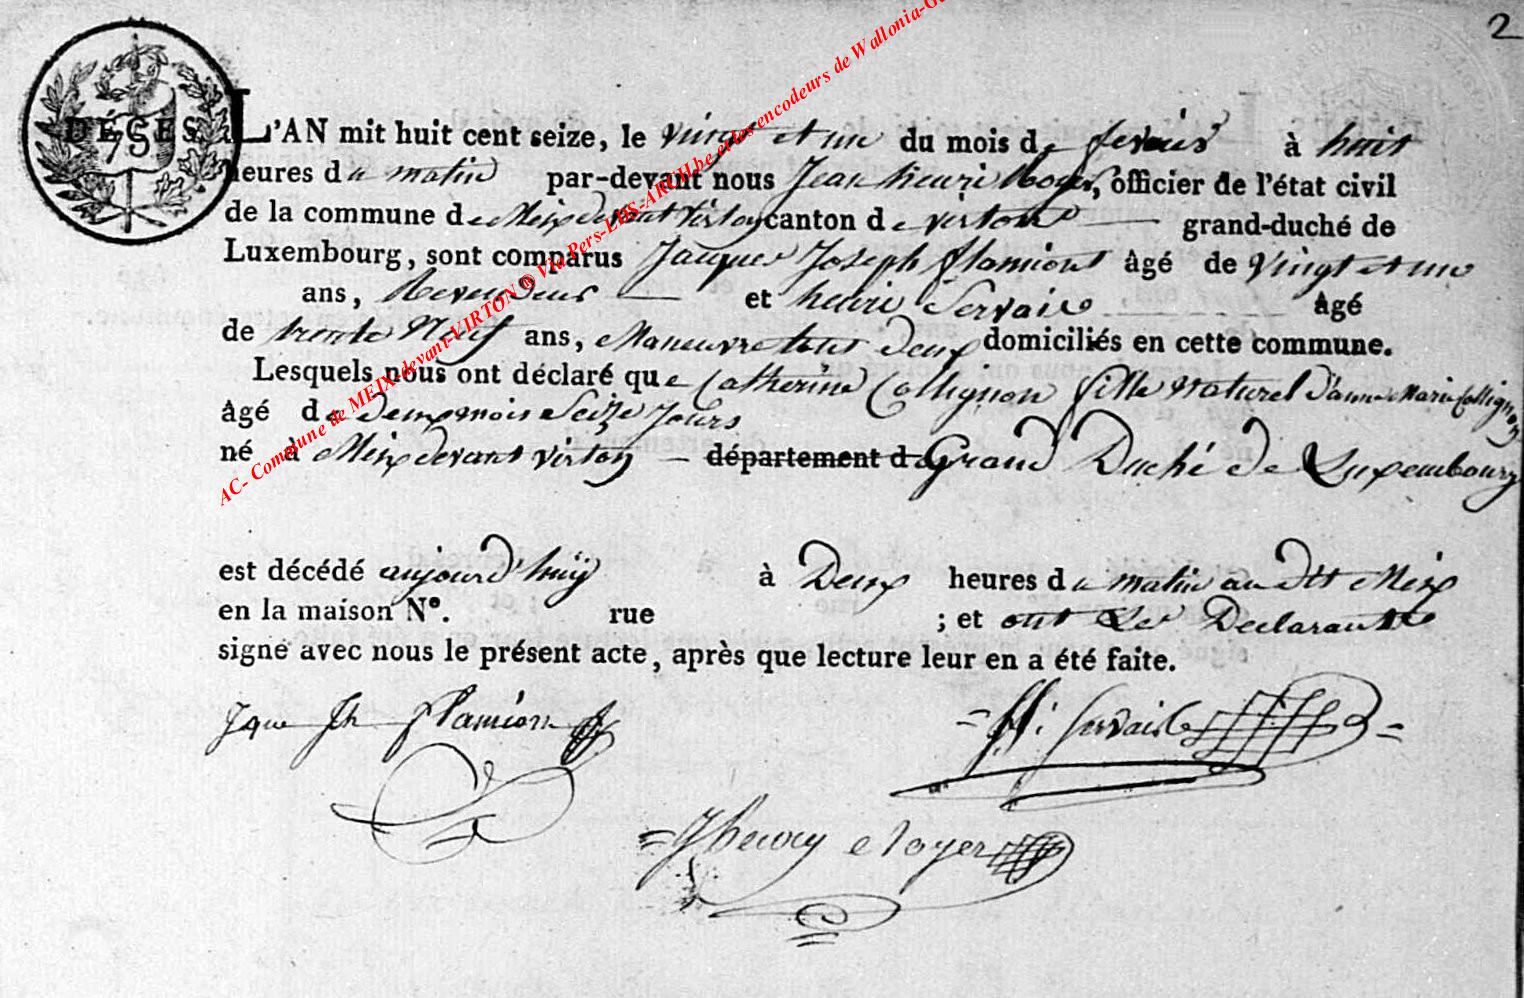 2
DÉCES
75
L'AN mil huit cent seize, le vingt et un du mois de fevrier à huit
heures du matin par-devant nous Jean henri Noyer, officier de l'état civil
de la commune de Meix devant Virton canton de virton grand-duché de
Luxembourg, sont comparus Jacques Joseph flamiont âgé de vingt et un
ans, Revendeur et henri Servais âgé
de trente Neuf ans, Maneuvre tous deux domiciliés en cette commune.
Lesquels nous ont déclaré que Catherine Collignon fille naturel d'anne Marie Collignon
âgé de deux mois Seize Jours
né à Meix devant virton département de Grand Duché de Luxembourg
est décédé aujourd'huÿ à Deux heures du matin au dit Meix
en la maison N°. rue ; et ont Les Declarants
signé avec nous le présent acte, après que lecture leur en a été faite.
Jque Jh flamion
H: Servais
Jhenry Noyer
AC- Commune de MEIX-devant-VIRTON ® Via Pers-LDS-ARCH.be et les encodeurs de Wallonia-G